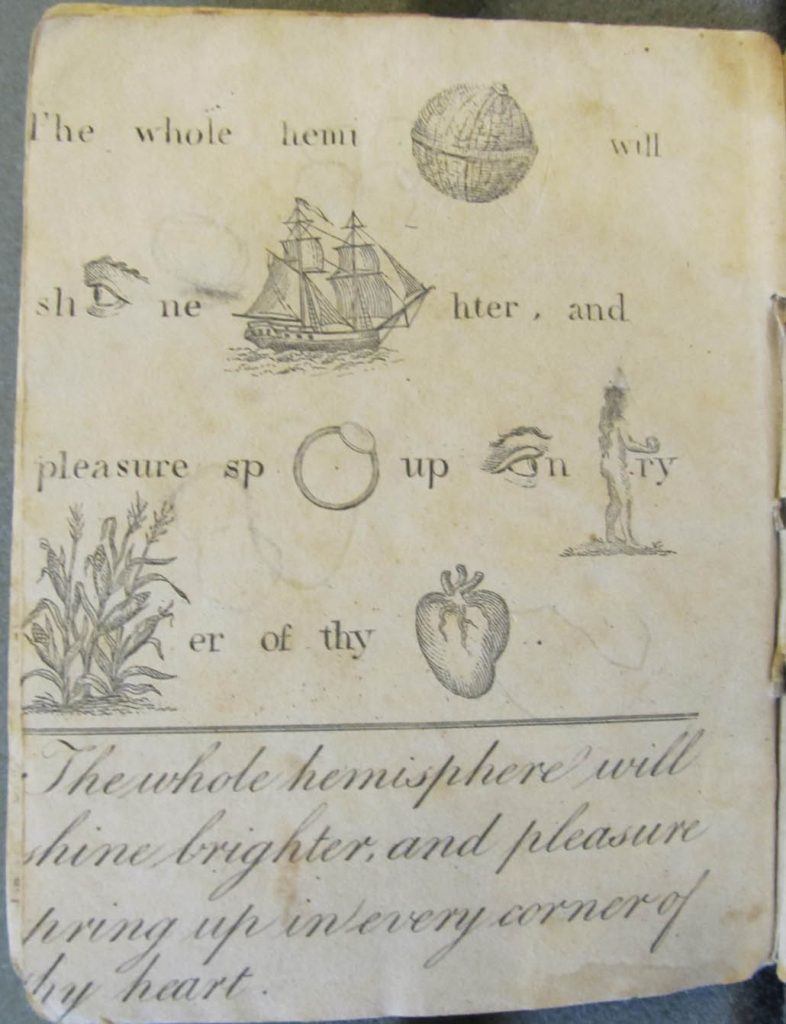 The whole hemi will
sh ne hter, and
pleasure sp up n ry
er of thy .
The whole hemisphere will
shine brighter, and pleasure
spring up in every corner of
thy heart.